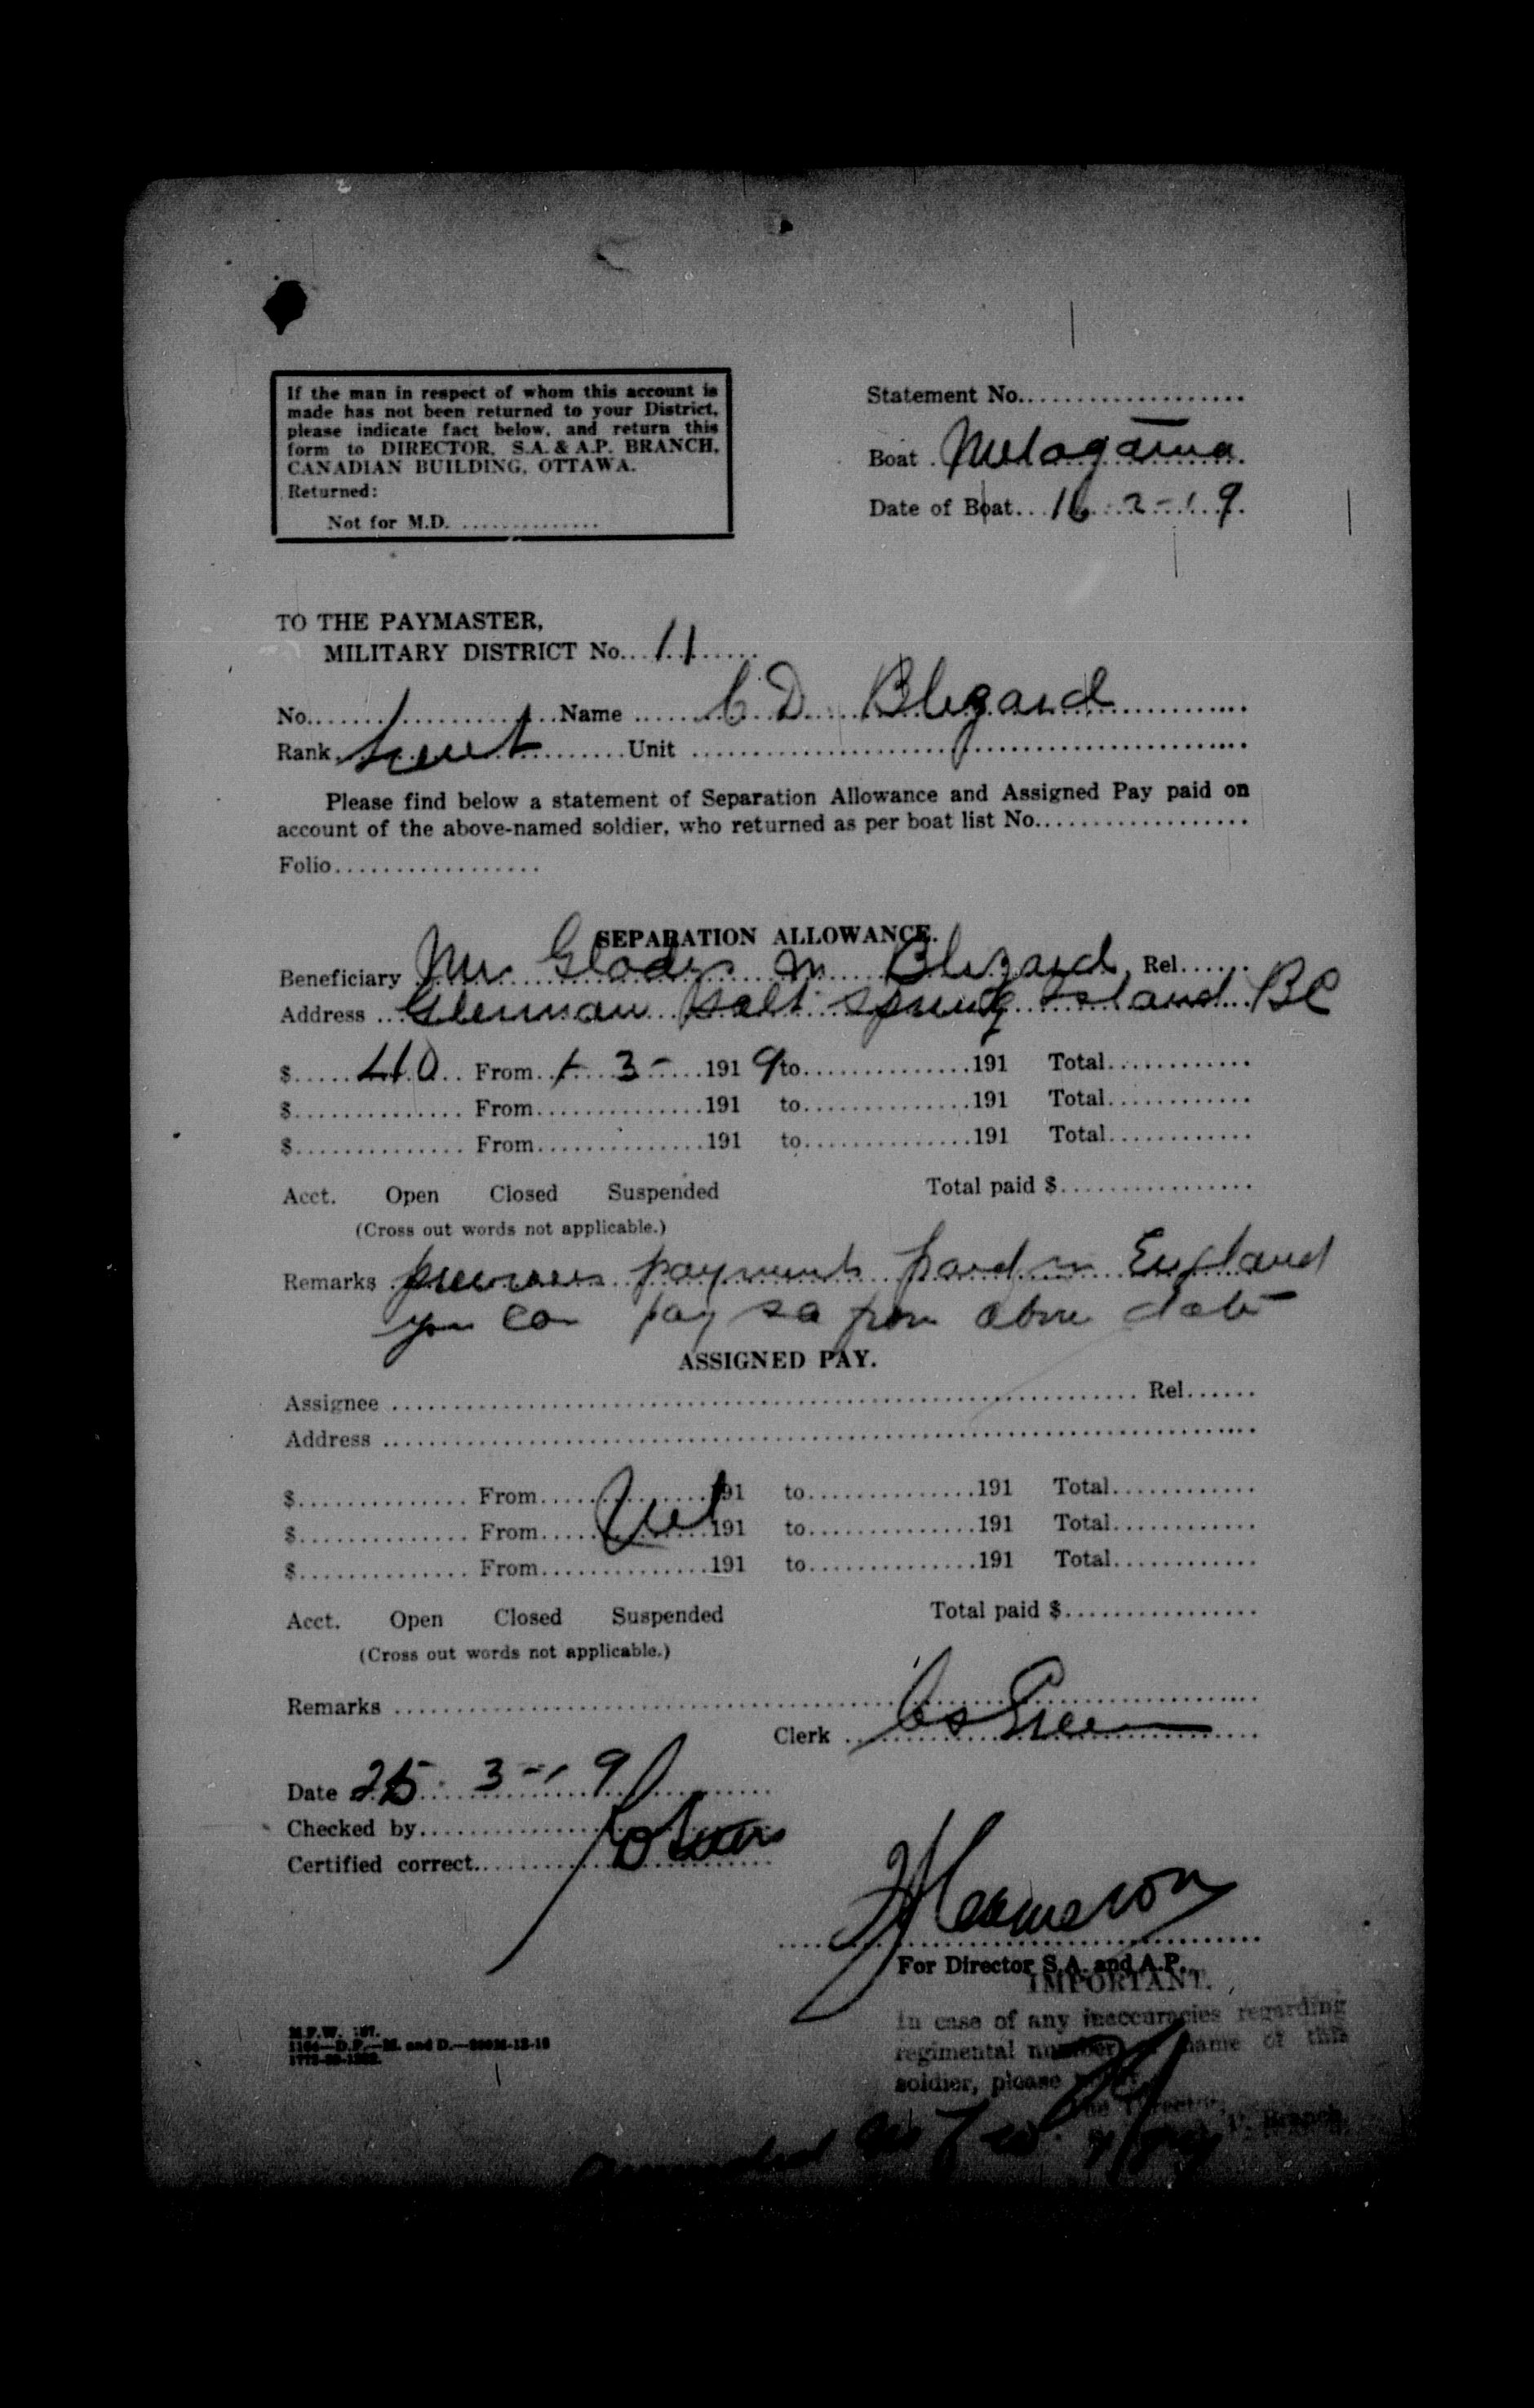 If the man in respect of whom this account is
made has not been returned to your District,
please indicate fact below, and return this
form to DIRECTOR, S.A. & A.P. BRANCH,
CANADIAN BUILDING, OTTAWA.
Returned:
Not for M.D. ..............
Statement No....................
Boat . Metagama
Date of Boat... 16 - 2 - 19
TO THE PAYMASTER,
MILITARY DISTRICT No... 11
No.................... Name ...... C D Blizard
Rank. Lieut ....... Unit ........................................
Please find below a statement of Separation Allowance and Assigned Pay paid on
account of the above-named soldier, who returned as per boat list No..................
Folio.................
SEPARATION ALLOWANCE.
Beneficiary Mrs Gladys M Blizard Rel......
Address ... Salt Spring Island BC
$..... 40 .. From.. 1 - 3 - 1919 to...............191 Total............
$.............. From...............191 to...............191 Total............
$.............. From...............191 to...............191 Total............
Acct. Open Closed Suspended Total paid $................
(Cross out words not applicable.)
Remarks previous payments paid in England
you can pay sa from above date
ASSIGNED PAY.
Assignee ........................................ Rel......
Address ........................................
$.............. From...............191 to...............191 Total............
Nil
$.............. From...............191 to...............191 Total............
$.............. From...............191 to...............191 Total............
Acct. Open Closed Suspended Total paid $................
(Cross out words not applicable.)
Remarks ........................................
Clerk ..
Date 25 - 3 - 19
Checked by..............
Certified correct..........
J Cameron
For Director S.A. and A.P.
IMPORTANT.
In case of any inaccuracies regarding
regimental number name of this
soldier, please
The Director,
Branch
M.F.W.
and D.